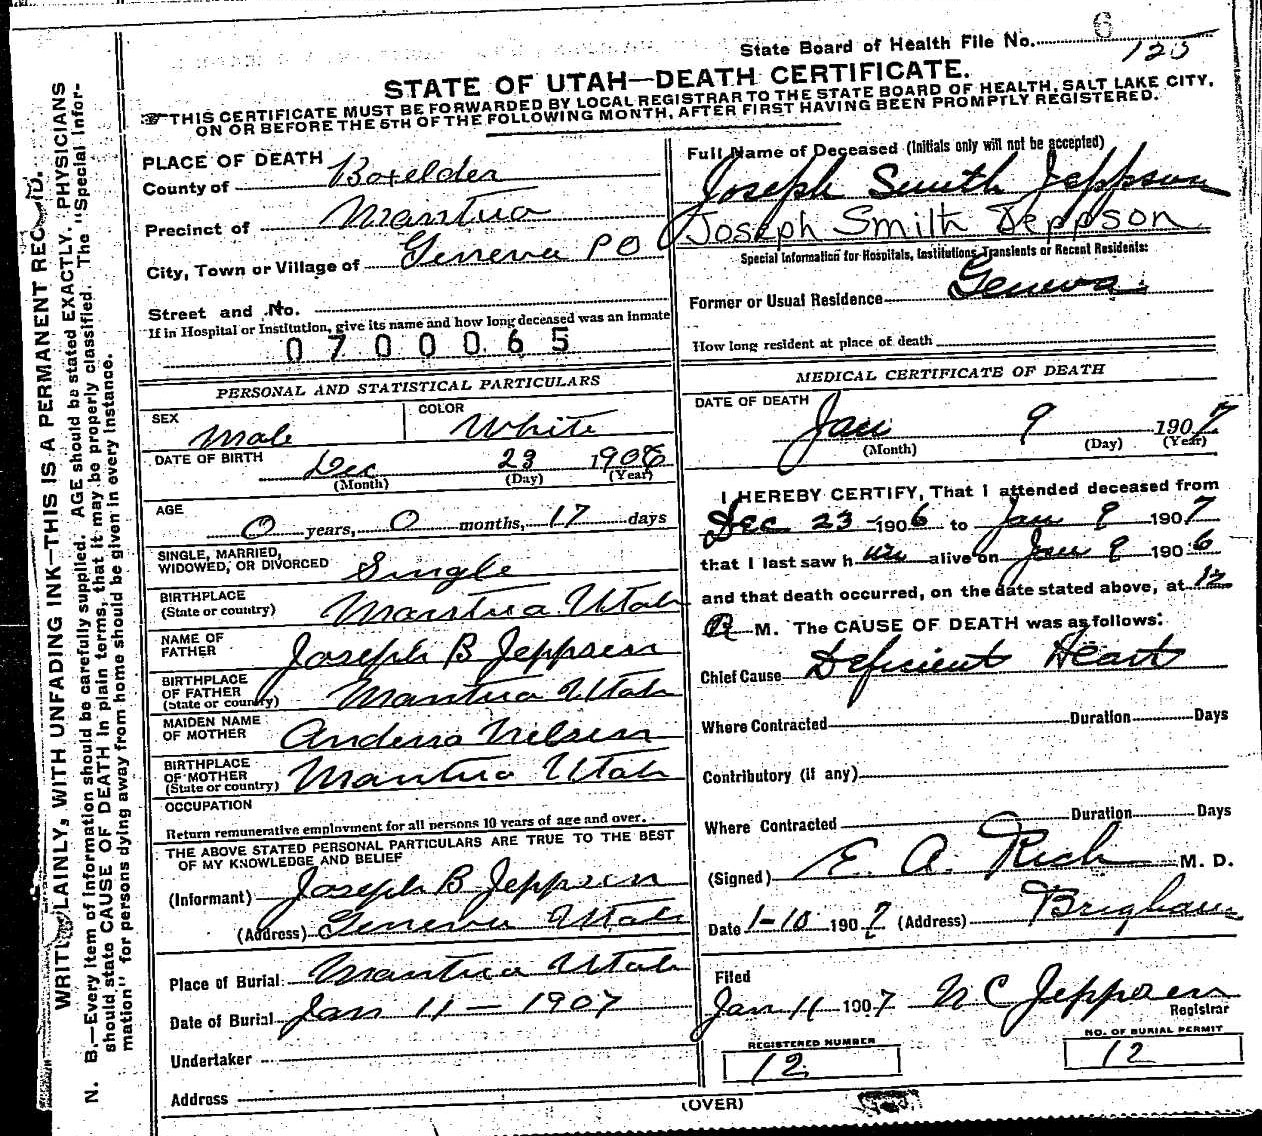 State Board of Health File No. 6
125
STATE OF UTAH—DEATH CERTIFICATE.
THIS CERTIFICATE MUST BE FORWARDED BY LOCAL REGISTRAR TO THE STATE BOARD OF HEALTH, SALT LAKE CITY,
ON OR BEFORE THE 5TH OF THE FOLLOWING MONTH, AFTER FIRST HAVING BEEN PROMPTLY REGISTERED.
PLACE OF DEATH
County of Boxelder
Precinct of Mantua
City, Town or Village of Geneva PO
Street and No.
If in Hospital or Institution, give its name and how long deceased was an Inmate
0700065
PERSONAL AND STATISTICAL PARTICULARS
SEX Male
COLOR White
DATE OF BIRTH Dec 23 1906
(Month) (Day) (Year)
AGE
0 years, 0 months, 17 days
SINGLE, MARRIED,
WIDOWED, OR DIVORCED Single
BIRTHPLACE
(State or country) Mantua Utah
NAME OF
FATHER Joseph B Jeppsen
BIRTHPLACE
OF FATHER
(State or country) Mantua Utah
MAIDEN NAME
OF MOTHER Nelsen
BIRTHPLACE
OF MOTHER
(State or country) Mantua Utah
OCCUPATION
Return remunerative employment for all persons 10 years of age and over.
THE ABOVE STATED PERSONAL PARTICULARS ARE TRUE TO THE BEST
OF MY KNOWLEDGE AND BELIEF
(Informant) Joseph B Jeppsen
(Address) Geneva Utah
Place of Burial Mantua Utah
Date of Burial Jan 11 — 1907
Undertaker
Address
Full Name of Deceased (Initials only will not be accepted)
Joseph Smith Jeppson
Joseph Smith Jeppson
Special Information for Hospitals, Institutions, Transients or Recent Residents:
Former or Usual Residence Geneva
How long resident at place of death
MEDICAL CERTIFICATE OF DEATH
DATE OF DEATH
Jan 9 1907
(Month) (Day) (Year)
I HEREBY CERTIFY, That I attended deceased from
Dec 23 1906 to Jan 9 1907
that I last saw him alive on Jan 9 1906
and that death occurred, on the date stated above, at 12
M. The CAUSE OF DEATH was as follows:
Chief Cause Deficient Heart
Where Contracted Duration Days
Contributory (if any)
Where Contracted Duration Days
(Signed) E. A. Rich M. D.
Date 1-10 1907 (Address) Brigham
Filed
Jan 11 1907 N C Jeppsen
Registrar
REGISTERED NUMBER
12
NO. OF BURIAL PERMIT
12
(OVER)
LAINLY, WITH UNFADING INK—THIS IS A PERMANENT
N. B.—Every item of information should be carefully supplied. AGE should be stated EXACTLY. PHYSICIANS
should state CAUSE OF DEATH in plain terms, that it may be properly classified. The "Special Infor-
mation" for persons dying away from home should be given in every instance.